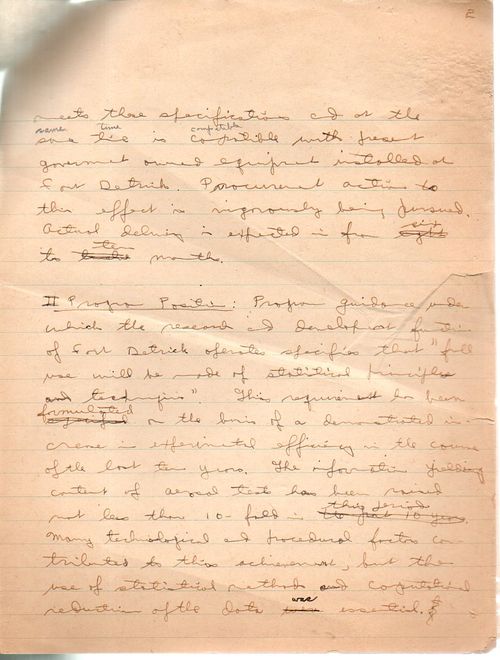 2
meets these specifications and at the
same time compatible
same time is compatible with present
government owned equipment installed at
Fort Detrick. Procurement action to
this effect is vigorously being pursued.
Actual delivery is expected in from eight six
to twelve ten months.
II Program Position: Program guidance under
which the research and development function
of Fort Detrick operates specifies that "full
use will be made of statistical principles
and techniques". This requirement has been
formulated
on the basis of a demonstrated in-
crease in experimental efficiency in the course
of the last ten years. The information yielding
content of aerosol tests has been raised
this period
not less than 10-fold in the past 10 years.
Many technological and procedural factors con
tributed to this achievement, but the
use of statistical methods and computational
was
reduction of the data essential.